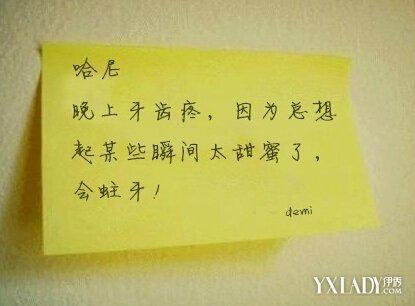 哈尼
晚上牙齿疼，因为总想
起某些瞬间太甜蜜了，
会蛀牙！
demi
YXLADY伊秀
.com